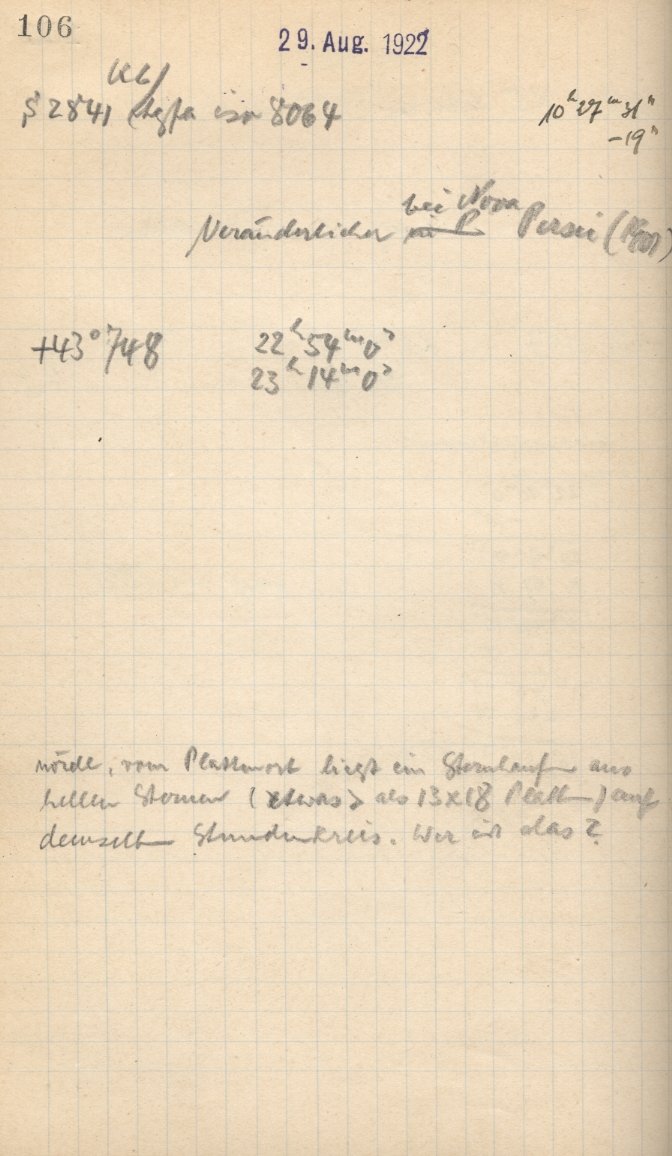 106
29. Aug. 1922
S 2841 Agfa iso 8064
10ʰ 27ᵐ 31ˢ
-19ˢ
bei Nova
Veränderlicher P Persei (1901)
+43° 748 22ʰ 54ᵐ 0ˢ
23ʰ 14ᵐ 0ˢ
nördl. vom Plattenort liegt ein Sternhaufen aus
hellen Sternen (etwas > als 13x18 Platten) auf
demselben Stundenkreis. Wer ist das?